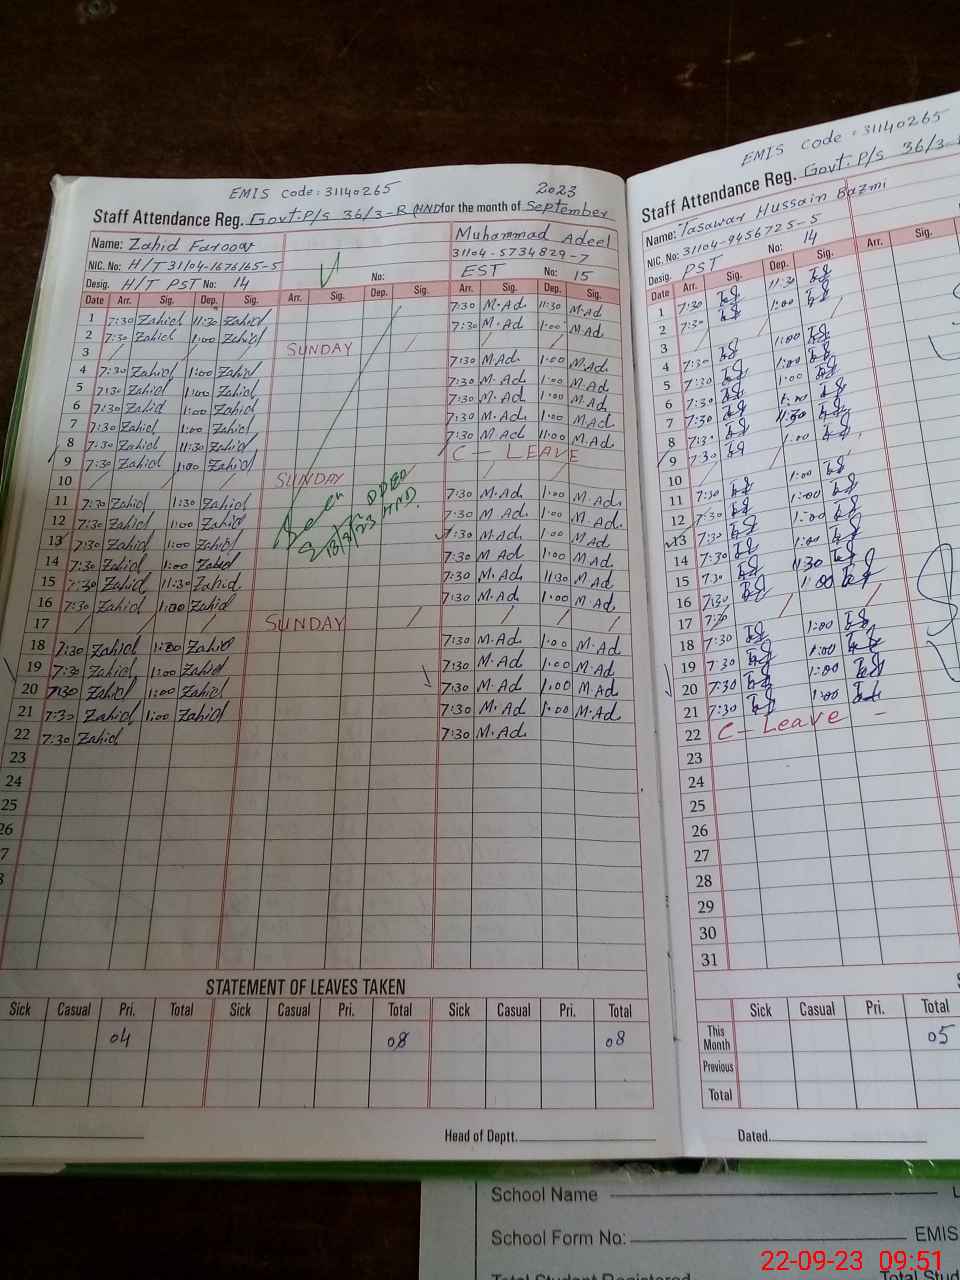 EMIS Code: 31140265
2023
Staff Attendance Reg. Govt: P/S 36/3-R (HND for the month of September
Name: Zahid Farooq
NIC. No: H/T 31104-1676165-5
Desig. H/T PST No: 14
No:
Muhammad Adeel
31104-5734829-7
EST No: 15
Date Arr. Sig. Dep. Sig. Arr. Sig. Dep. Sig.
1 7:30 Zahid 11:30 Zahid 7:30 M.Ad 11:30 M.Ad
2 7:30 Zahid 1:00 Zahid 7:30 M.Ad 1:00 M.Ad
3 SUNDAY
4 7:30 Zahid 1:00 Zahid 7:30 M.Ad 1:00 M.Ad
5 7:30 Zahid 1:00 Zahid 7:30 M.Ad 1:00 M.Ad
6 7:30 Zahid 1:00 Zahid 7:30 M.Ad 1:00 M.Ad
7 7:30 Zahid 1:00 Zahid 7:30 M.Ad 1:00 M.Ad
8 7:30 Zahid 11:30 Zahid 7:30 M.Ad 11:00 M.Ad
9 7:30 Zahid 1:00 Zahid C - LEAVE
10 SUNDAY
11 7:30 Zahid 1:30 Zahid 7:30 M.Ad 1:00 M.Ad.
12 7:30 Zahid 1:00 Zahid 7:30 M.Ad 1:00 M.Ad.
13 7:30 Zahid 1:00 Zahid 7:30 M.Ad 1:00 M.Ad.
14 7:30 Zahid 1:00 Zahid 7:30 M.Ad 1:00 M.Ad
15 7:30 Zahid 11:30 Zahid 7:30 M.Ad 11:30 M.Ad
16 7:30 Zahid 1:00 Zahid 7:30 M.Ad 1:00 M.Ad.
17 SUNDAY
18 7:30 Zahid 1:00 Zahid 7:30 M.Ad 1:00 M.Ad
19 7:30 Zahid 1:00 Zahid 7:30 M.Ad 1:00 M.Ad
20 7:30 Zahid 1:00 Zahid 7:30 M.Ad 1:00 M.Ad
21 7:30 Zahid 1:00 Zahid 7:30 M.Ad 1:00 M.Ad
22 7:30 Zahid 7:30 M.Ad
23
24
25
26
Seen
DDEO
HND.
STATEMENT OF LEAVES TAKEN
Sick Casual Pri. Total Sick Casual Pri. Total Sick Casual Pri. Total
04 08 08
Head of Deptt.
EMIS Code: 31140265
Staff Attendance Reg. Govt: P/S 36/3-
Name: Tasawar Hussain Bazmi
NIC. No: 31104-9456725-5
Desig. PST No: 14
Date Arr. Sig. Dep. Sig. Arr. Sig.
1 7:30 11:30
2 7:30 1:00
3
4 7:30 1:00
5 7:30 1:00
6 7:30 1:00
7 7:30 1:00
8 7:30 11:30
9 7:30 1:00
10
11 7:30 1:00
12 7:30 1:00
13 7:30 1:00
14 7:30 1:00
15 7:30 11:30
16 7:30 1:00
17
18 7:30 1:00
19 7:30 1:00
20 7:30 1:00
21 7:30 1:00
22 C - Leave -
23
24
25
26
27
28
29
30
31
Sick Casual Pri. Total
This Month 05
Previous
Total
Dated.
School Name
School Form No: EMIS
Total Student Registered Total Stud
22-09-23 09:51